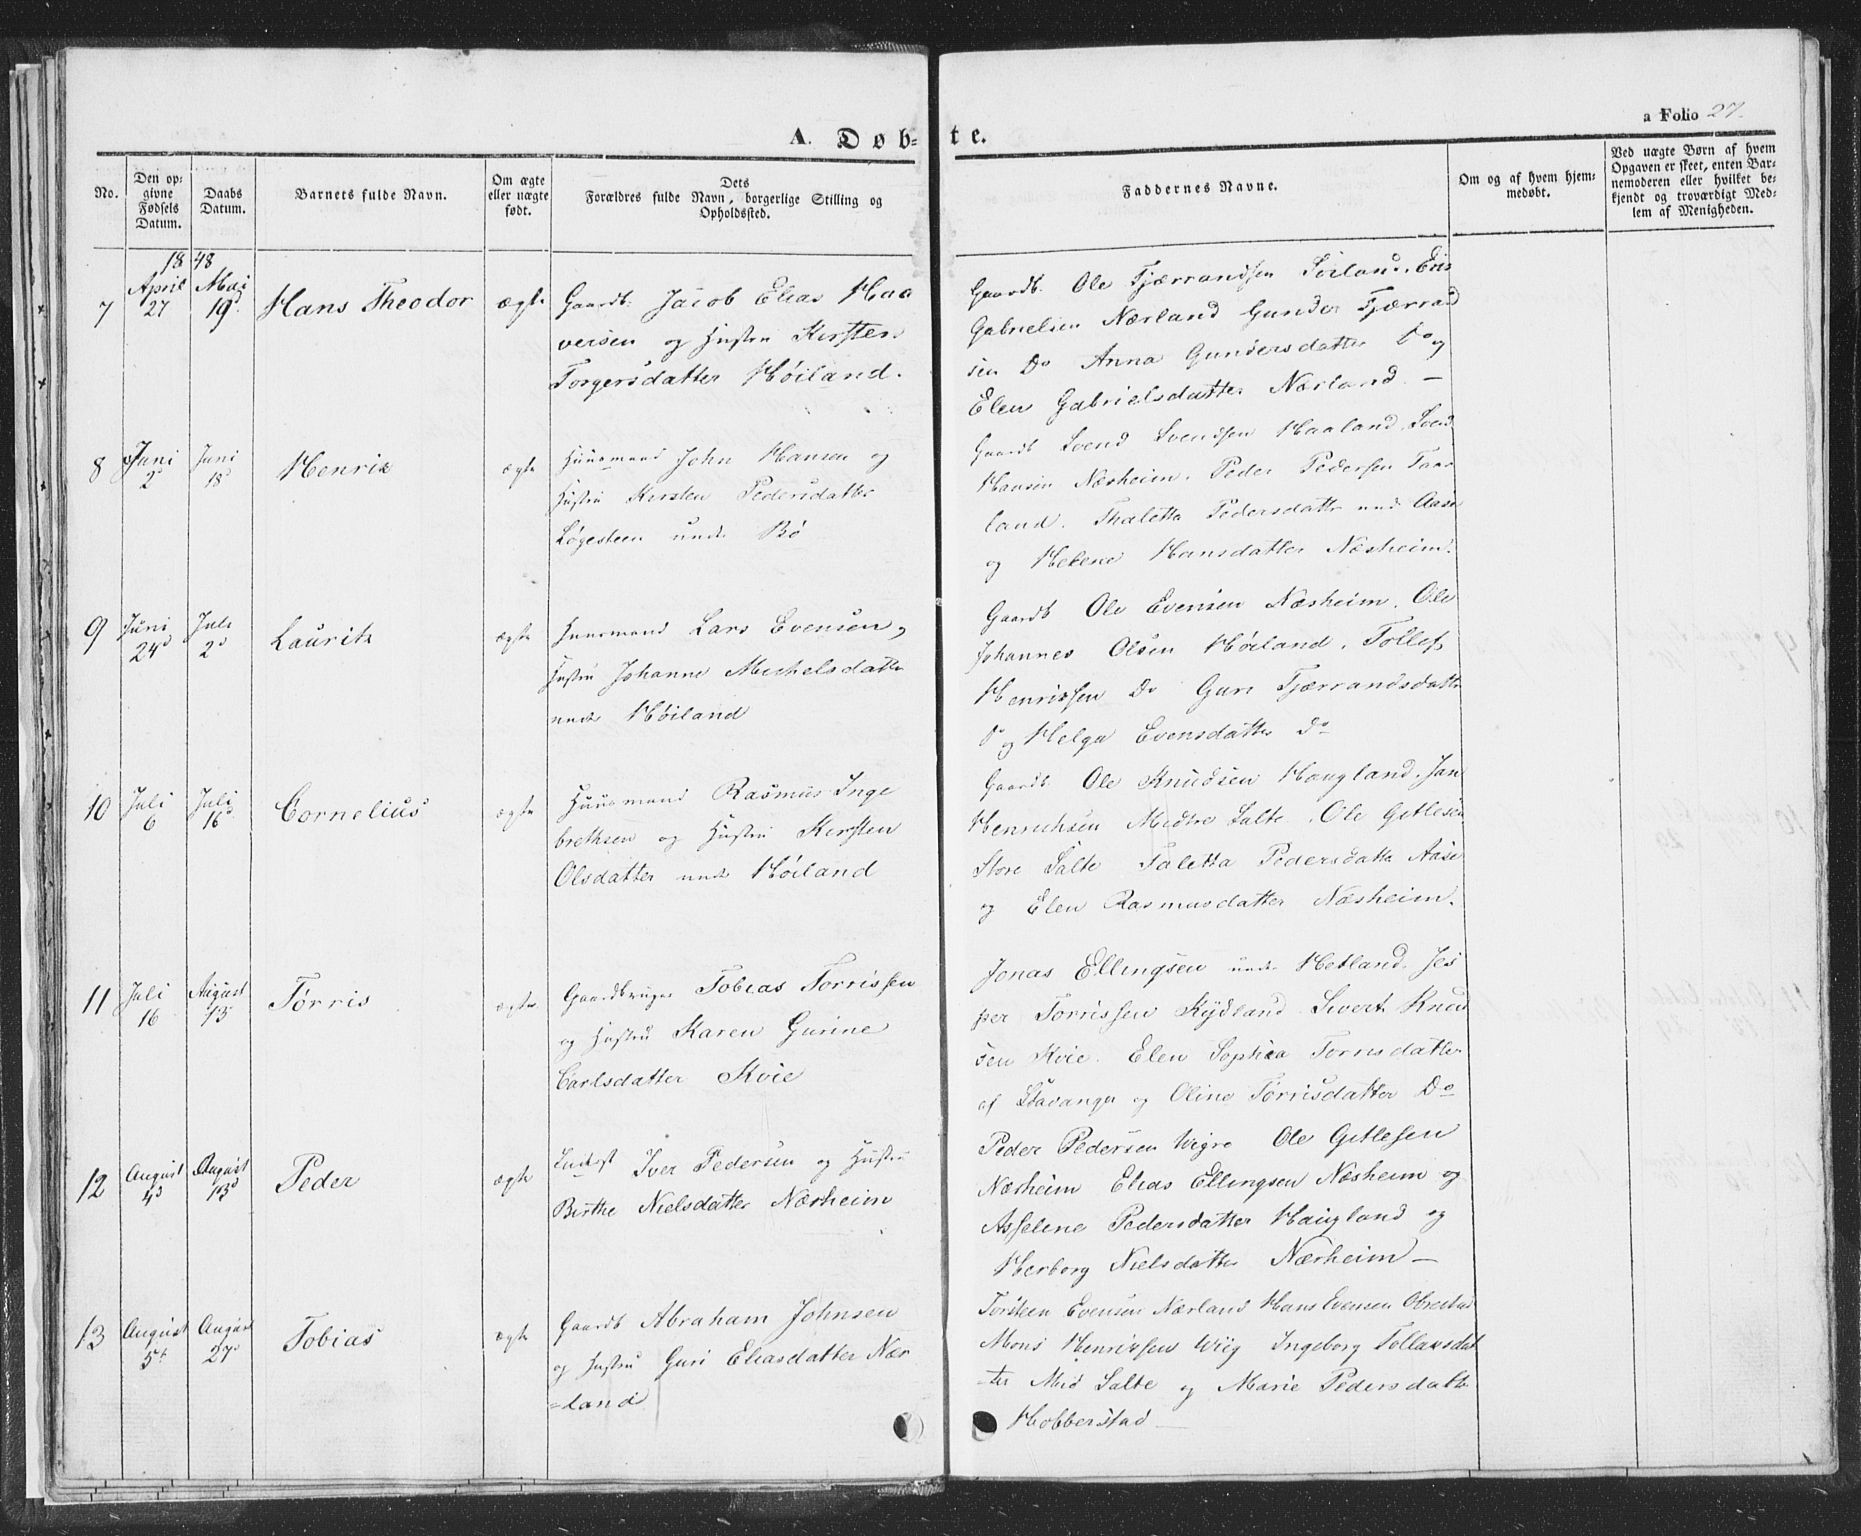 a Folio 27.
A. Døb-te.
No.
Den op-
givne
Fødsels
Datum.
Daabs
Datum.
Barnets fulde Navn.
Om ægte
eller uægte
født.
Dets
Forældres fulde Navn, borgerlige Stilling og
Opholdssted.
Faddernes Navne.
Om og af hvem hjem-
medøbt.
Ved uægte Børn af hvem
Opgaven er skeet, enten Bar-
nemoderen eller hvilket be-
kjendt og troværdigt Med-
lem af Menigheden.
1848
7
April
27
Mai
19
Hans Theodor
ægte
Gaardb. Jacob Elias Haa
versen og Hustru Kirsten
Torgersdatter Høiland.
Gaardb. Ole Tjærrandsen
Gabrielsen Nærland Gunder Tjærrand
sen Do Anna Gundersdatter Do og
Elen Gabrielsdatter Nærland. —
8
Juni
2
Juni
18
Henrik
ægte
Huusmand John Hansen og
Hustru Kirsten Pedersdatter
Løgesteen unde Bø
Gaardb Svend Svendsen Haaland. Svend
Hansen Næsheim. Peder Pedersen Taar
land. Thaletta Pedersdattr und Aase
og Helene Hansdatter Næsheim.
9
Juni
24
Juli
2
Lauritz
ægte
Huusmand Lars Evensen og
Hustru Johanne Michelsdatter
unde Høiland
Gaardb Ole Evensen Næsheim. Ole
Johannes Olsen Høiland. Tollef
Henrissen Do Guri Tjærrandsdatter
Do og Helga Evensdatter Do
10
Juli
6
Juli
16
Cornelius
ægte
Huusmand Rasmus Inge
brethsen og Hustru Kirsten
Olsdatter unde Høiland
Gaardb. Ole Knudsen Haugland. Jan
Henrichsen Midtre Salte. Ole Gitlesen
Store Salte Taletta Pedersdatter Aase
og Elen Rasmusdatter Næsheim.
11
Juli
16
August
13
Tørris
ægte
Gaardbruger Tobias Torrissen
og Hustru Karen Gurine
Carlsdatter Kvie
Jonas Ellingsen unde Hetland. Jes
per Torrissen Kydland Sivert Knud
sen Kvie. Elen Sophia Torrisdatter
af Stavanger og Oline Tørrisdatter Do
12
August
4
August
13
Peder
ægte
Iver Pedersen og Hustru
Birthe Nielsdatter Nærheim
Peder Pedersen Wigre Ole Gitlesen
Nærheim Elias Ellingsen Næsheim og
Asselene Pedersdatter Haugland og
Herborg Nielsdatter Nærheim —
13
August
5
August
27
Tobias
ægte
Gaardb Abraham Johnsen
og Hustru Guri Eliasdatter Nær
=land
Torsteen Evensen Nærland Hans Evensen Obrestad
Mons Henrissen Wiig Ingeborg Tollaksdat
-ter Mid Salte og Marie Pedersdatter
Hobberstad —